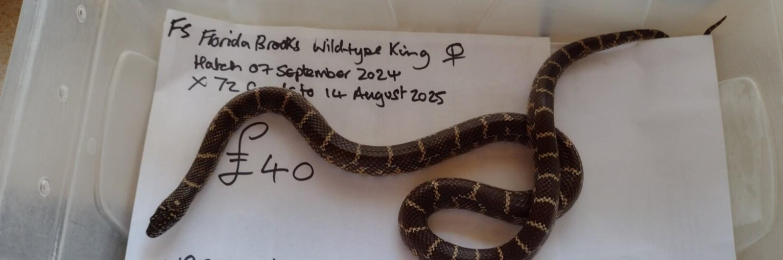 FS Florida Brooks Wildtype King ♀
Hatch 07 September 2024
X 72 to 14 August 2025
£40